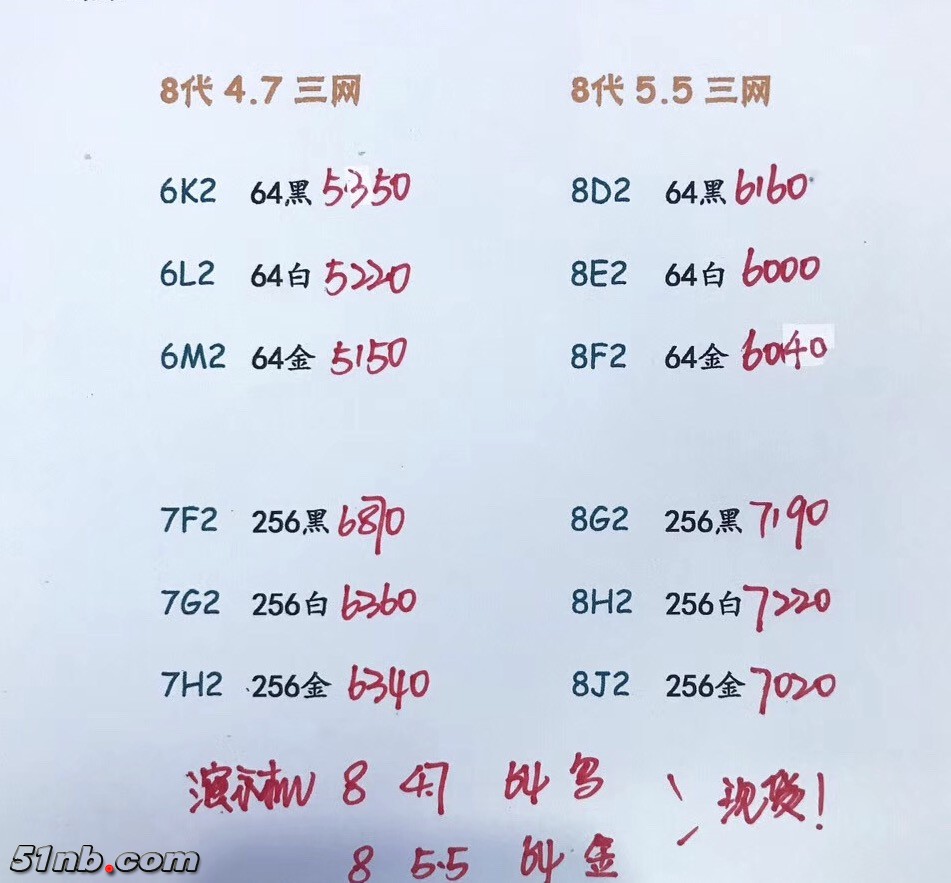 8代 4.7 三网
6K2 64黑 5350
6L2 64白 5220
6M2 64金 5150
7F2 256黑
7G2 256白 6360
7H2 256金 6340
8代 5.5 三网
8D2 64黑 6160
8E2 64白 6000
8F2 64金
8G2 256黑 7190
8H2 256白 7220
8J2 256金 7020
演示机 8 4.7 64
8 5.5 64 金
现货!
51nb.com